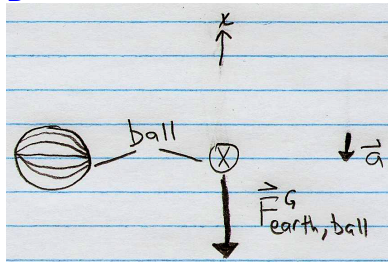 x
ball
X
a
F^G_earth, ball